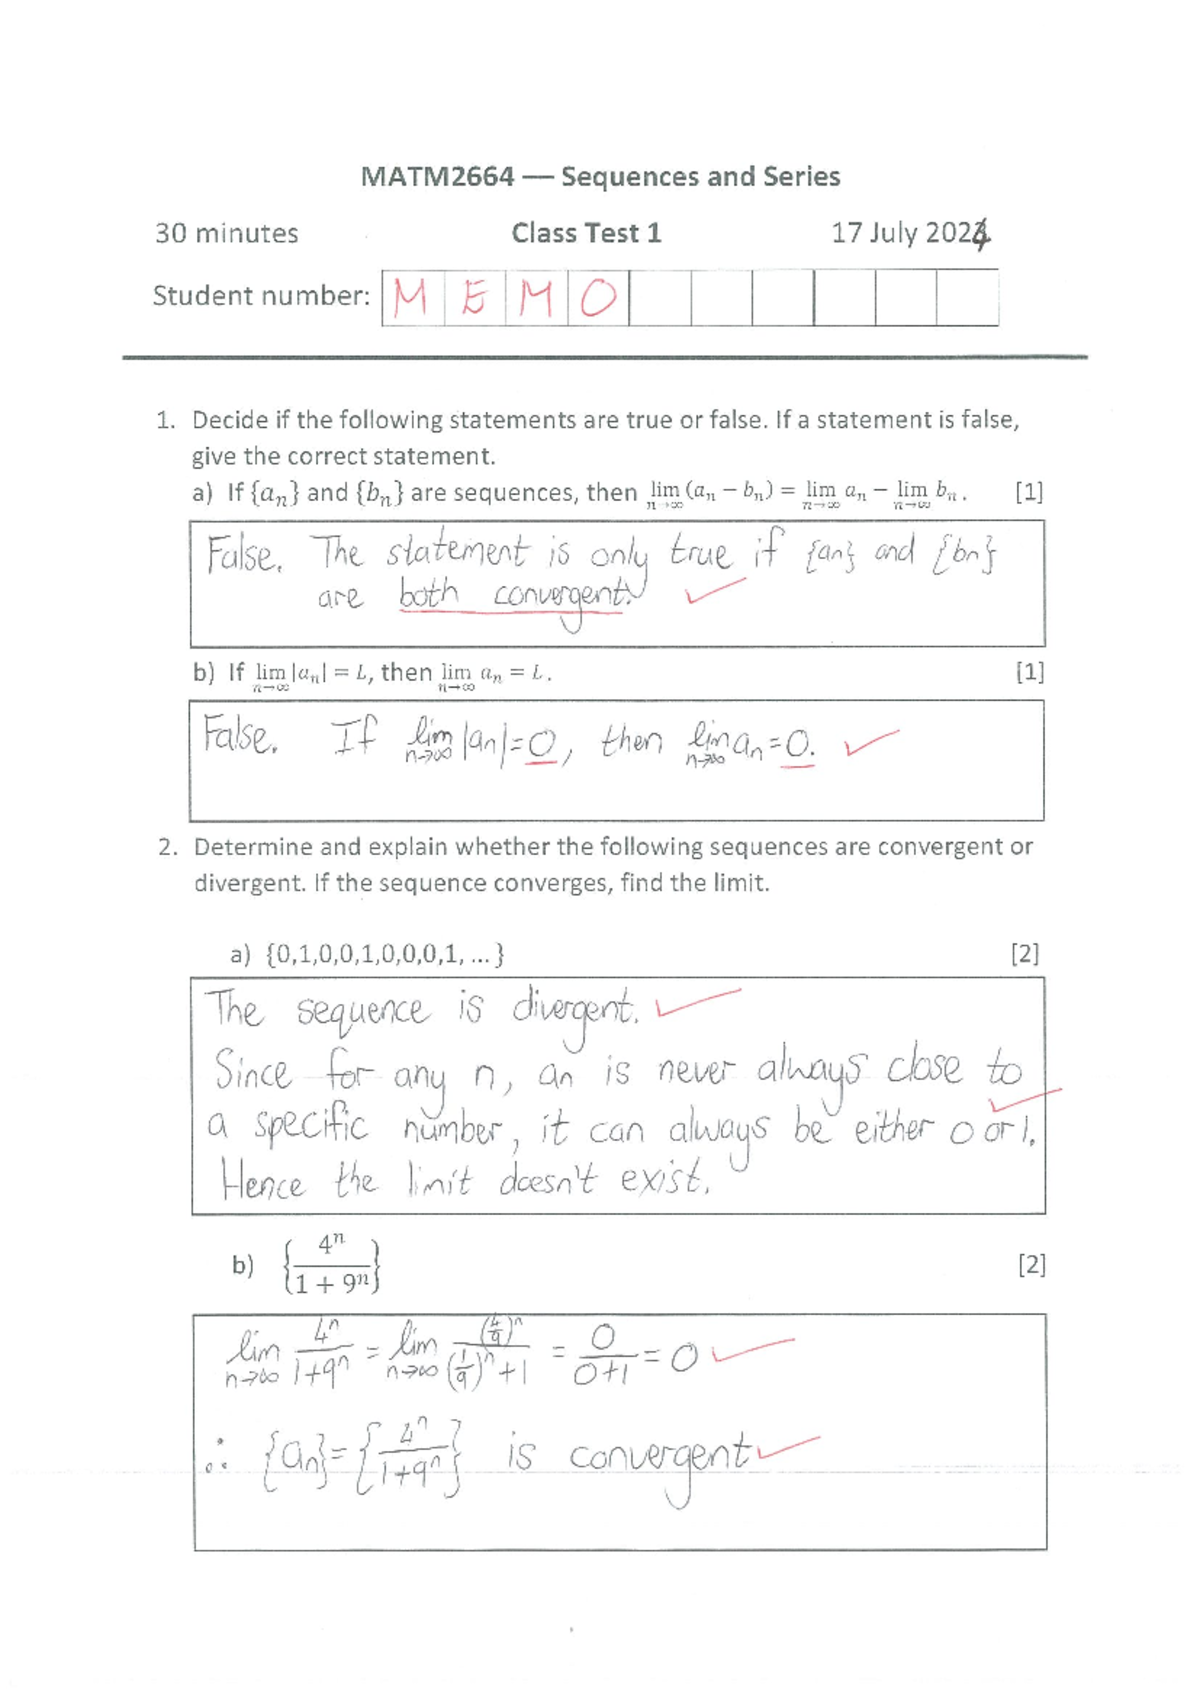 MATM2664 — Sequences and Series
30 minutes Class Test 1 17 July 2024
Student number: M E M O
1. Decide if the following statements are true or false. If a statement is false,
give the correct statement.
a) If {aₙ} and {bₙ} are sequences, then lim n→∞ (aₙ − bₙ) = lim n→∞ aₙ − lim n→∞ bₙ . [1]
False. The statement is only true if {an} and {bn}
are both convergent.
b) If lim n→∞ |aₙ| = L, then lim n→∞ aₙ = L. [1]
False. If lim n→∞ |an|=0, then lim n→∞ an=0.
2. Determine and explain whether the following sequences are convergent or
divergent. If the sequence converges, find the limit.
a) {0,1,0,0,1,0,0,0,1, ... } [2]
The sequence is divergent.
Since for any n, an is never always close to
a specific number, it can always be either 0 or 1.
Hence the limit doesn't exist.
b) {4ⁿ / (1 + 9ⁿ)} [2]
lim n→∞ 4ⁿ/(1+9ⁿ) = lim n→∞ (4/9)ⁿ/((1/9)ⁿ+1) = 0/(0+1) = 0
∴ {an}={4ⁿ/(1+9ⁿ)} is convergent